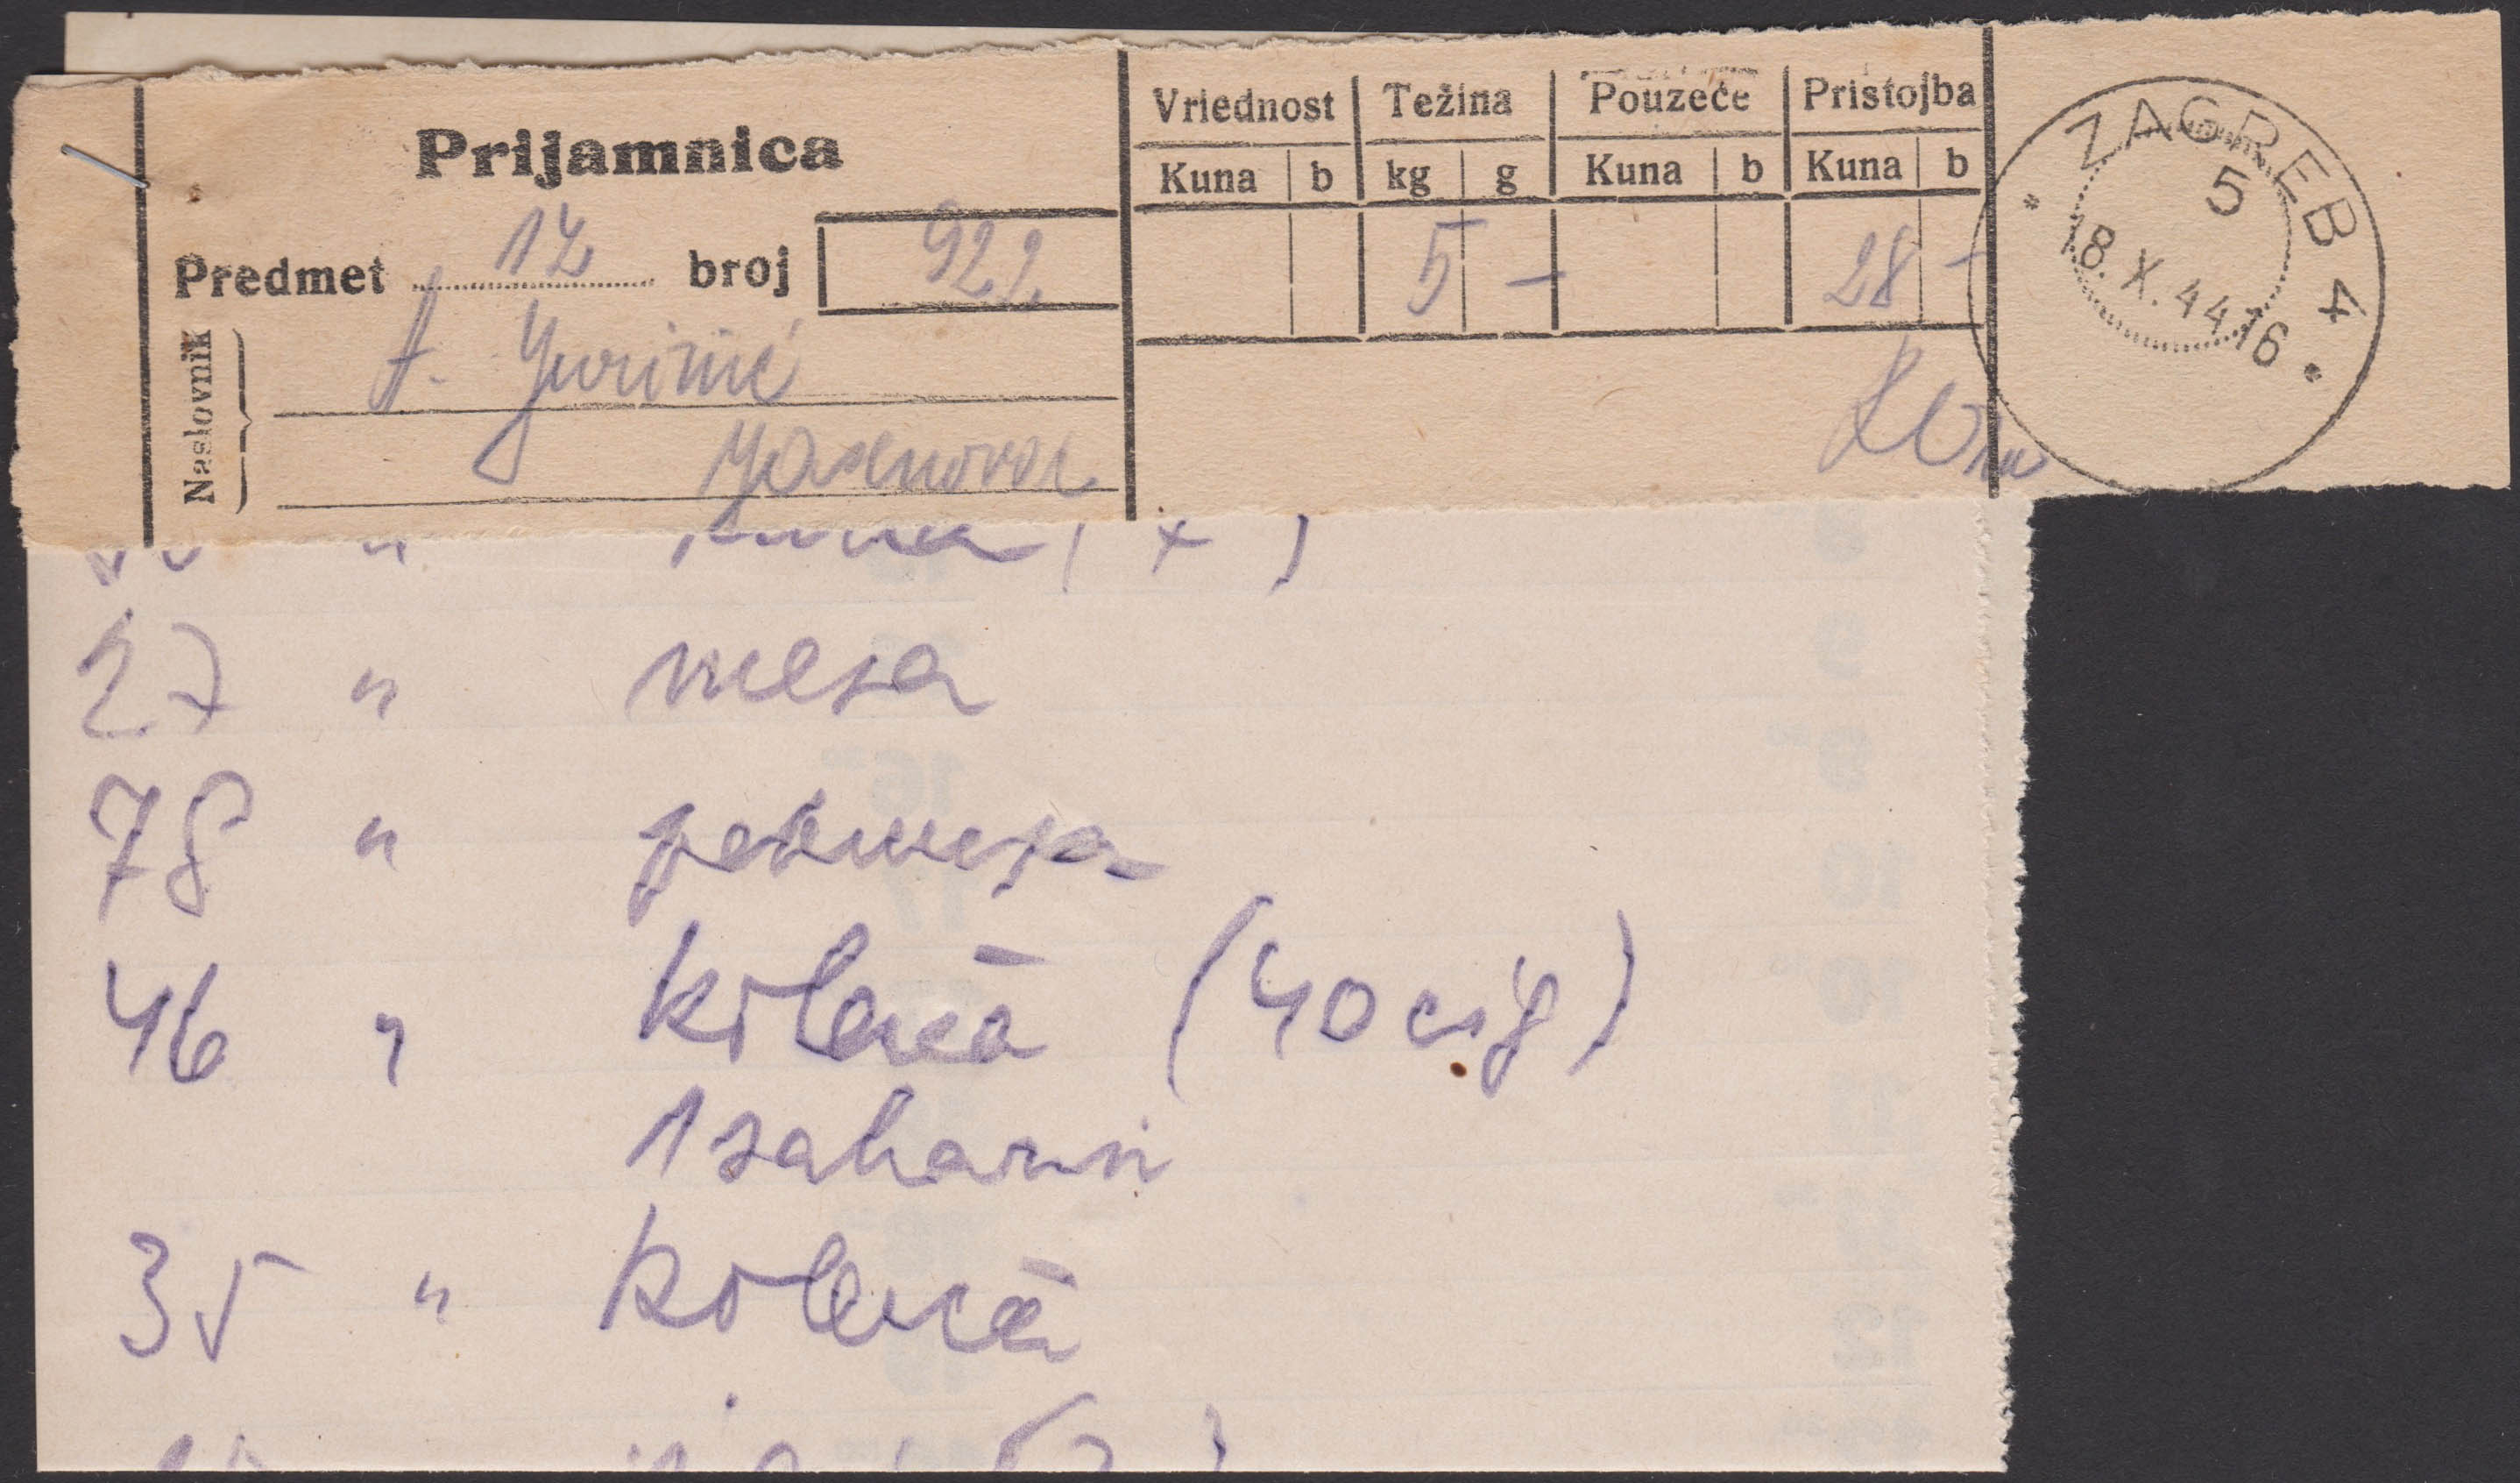 Prijamnica
Predmet 12 broj 922
Naslovnik
A. Jurinić
Jasenovac
Vriednost Težina Pouzeće Pristojba
Kuna b kg g Kuna b Kuna b
5 – 28 –
ZAGREB 4
5
18. X. 44 16
27 " mesa
78 " pekmeza
46 " kolača (40 cig)
1 saharin
35 " kolača